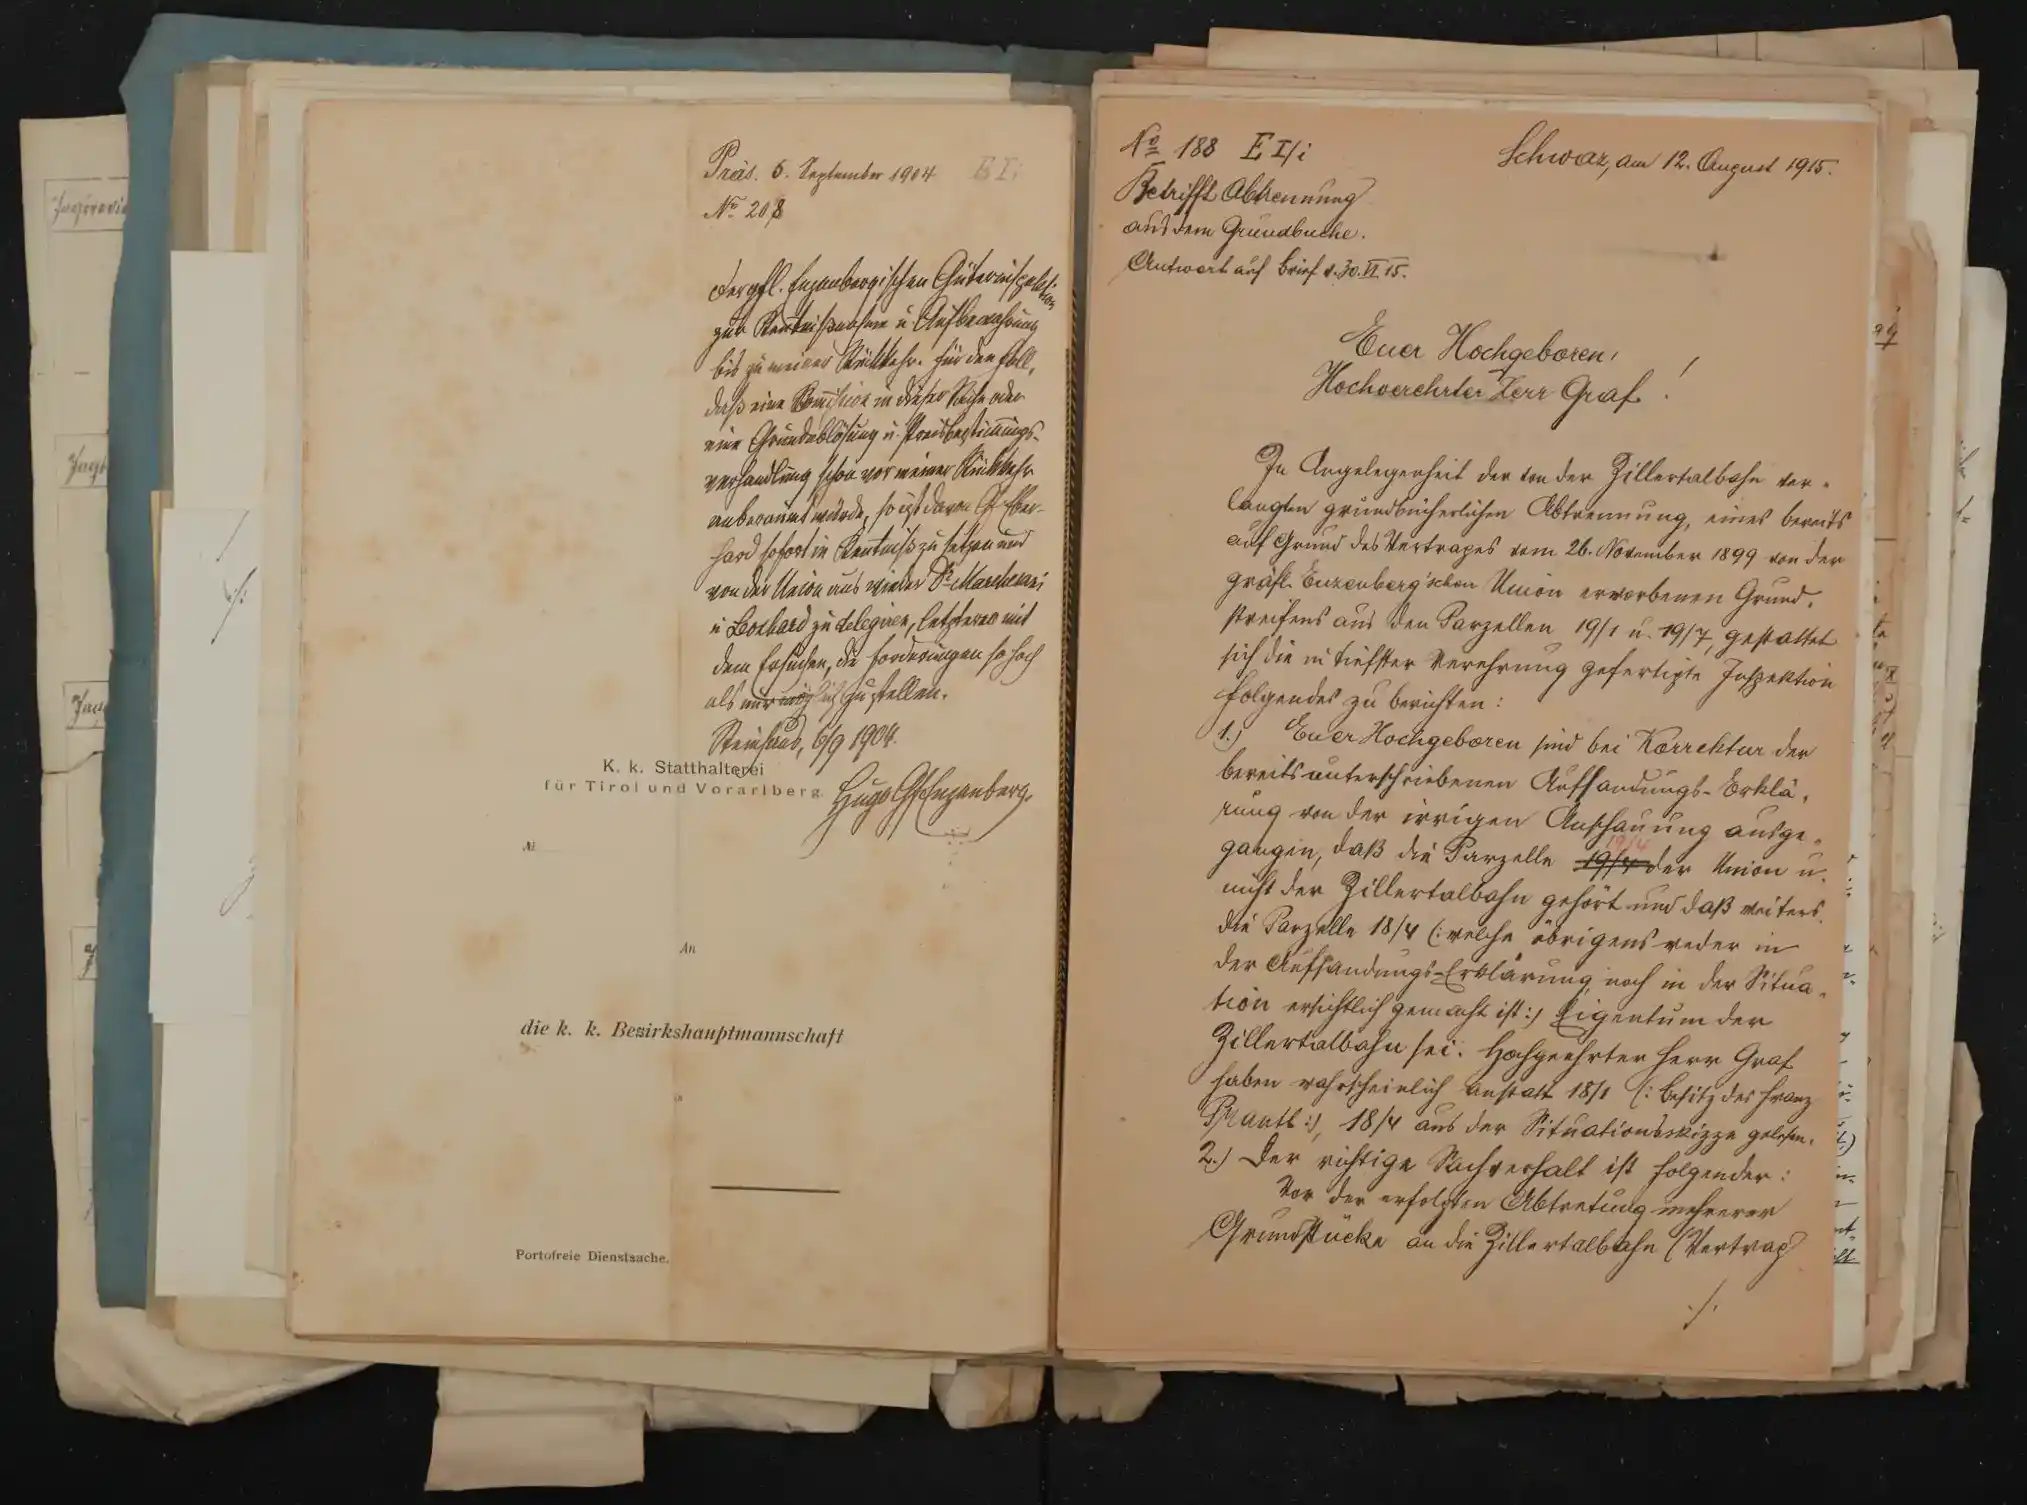 Präs. 6. September 1904 E I i
No. 208
der gfl. Enzenbergischen Güterinspektion
zur Kenntnißnahme u. Aufbewahrung
bis zu meiner Rückkehr. Für den Fall,
daß eine Commission in dieser Sache oder
eine Grundablösung u. Preisbestimmungs-
verhandlung schon vor meiner Rückkehr
anberaumt würde, so ist davon Gf Eber-
hard sofort in Kenntniß zu setzen und
von der Union aus wieder Dr. Marchesani
u Boxhard zu delegiren, letzterer mit
dem Ersuchen, die Forderungen so hoch
als nur möglich zu stellen.
Steinhaus, 6/9 1904.
Hugo Gf Enzenberg.
K. k. Statthalterei
für Tirol und Vorarlberg.
№
An
die k. k. Bezirkshauptmannschaft
in
Portofreie Dienstsache.
No 188 E I/i
Schwaz, am 12. August 1915.
Betrifft Abtrennung
aus dem Grundbuche.
Antwort auf Brief v. 30. VI. 15.
Euer Hochgeboren,
Hochverehrter Herr Graf!
In Angelegenheit der von der Zillertalbahn ver-
langten grundbücherlichen Abtrennung, eines bereits
auf Grund des Vertrages vom 26. November 1899 von der
gräfl. Enzenberg'schen Union erworbenen Grund-
streifens aus den Parzellen 19/1 u. 19/7, gestattet
sich die in tiefster Verehrung gefertigte Inspektion
folgendes zu berichten:
1.) Euer Hochgeboren sind bei Korrektur der
bereits unterschriebenen Aufsandungs-Erklä-
rung von der irrigen Anschauung ausge-
19/4
gangen, daß die Parzelle der Union u.
nicht der Zillertalbahn gehört und daß weiters
die Parzelle 18/4 (: welche übrigens weder in
der Aufsandungs-Erklärung noch in der Situa-
tion ersichtlich gemacht ist :) Eigentum der
Zillertalbahn sei. Hochgeehrter Herr Graf
haben wahrscheinlich anstatt 18/1 (: Besitz des Franz
Prantl :), 18/4 aus der Situationsskizze gelesen.
2.) Der richtige Sachverhalt ist folgender:
Vor der erfolgten Abtretung mehrerer
Grundstücke an die Zillertalbahn (Vertrag
./.